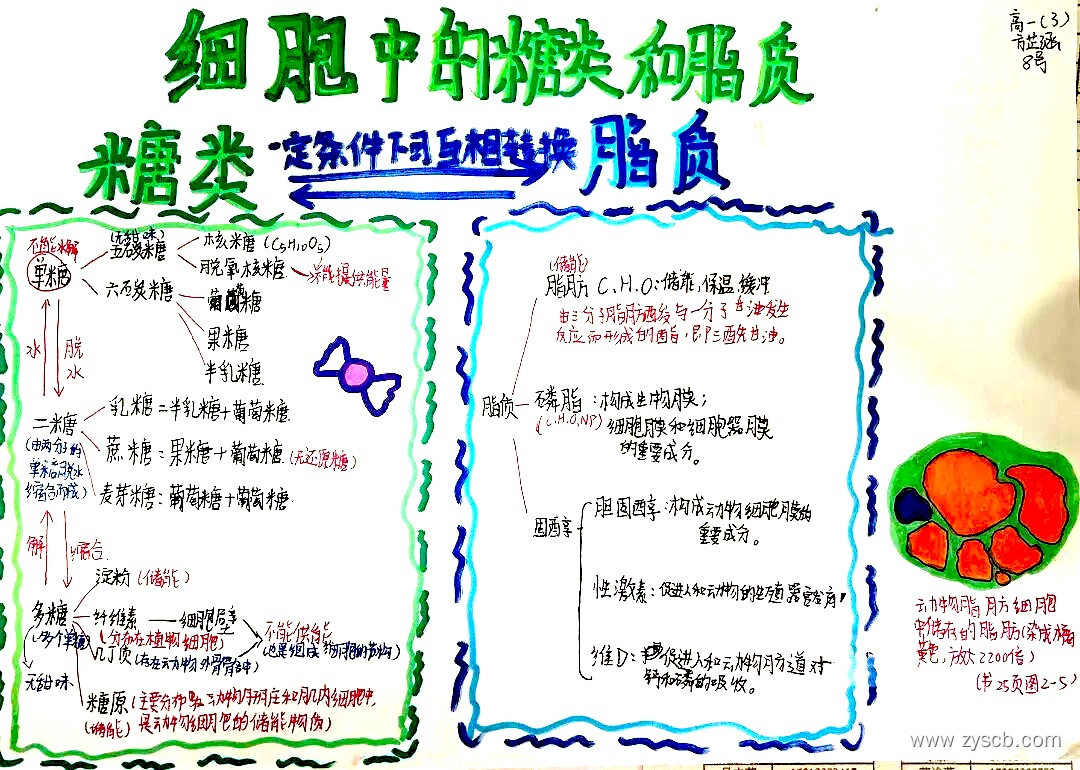 细胞中的糖类和脂质
高一(3)
8号
糖类
一定条件下可互相转换
脂质
不能水解
单糖
(无甜味)
五碳糖
核糖 (C5H10O5)
脱氧核糖
六碳糖
葡萄糖
果糖
半乳糖
水
脱水
二糖
(由两分子的
单糖后脱水
缩合而成)
乳糖=半乳糖+葡萄糖
蔗糖=果糖+葡萄糖 (无还原糖)
麦芽糖:葡萄糖+葡萄糖
解
缩合
淀粉 (储能)
多糖
(多个单糖)
无甜味
纤维素
细胞壁
(分布在植物细胞)
几丁质
(存在动物外骨骼中)
不能供能
糖原 (主要分布
动物肝脏和肌肉细胞中,
(储能)
是动物细胞的储能物质)
(储能)
脂肪 C.H.O:储能,保温,缓冲
由三分子脂肪酸与一分子甘油发生
反应而形成的酯,即三酰甘油。
脂质
磷脂:构成生物膜;
(C.H.O.N.P)
细胞膜和细胞器膜
的重要成分。
固醇
胆固醇:构成动物细胞膜的
重要成分。
性激素:促进人和动物的生殖器官发育
维D:促进人和动物肠道对
钙和磷的吸收。
动物脂肪细胞
中储存的脂肪(染成橘
黄色,放大2200倍)
(书25页图2-5)
www.zyscb.com